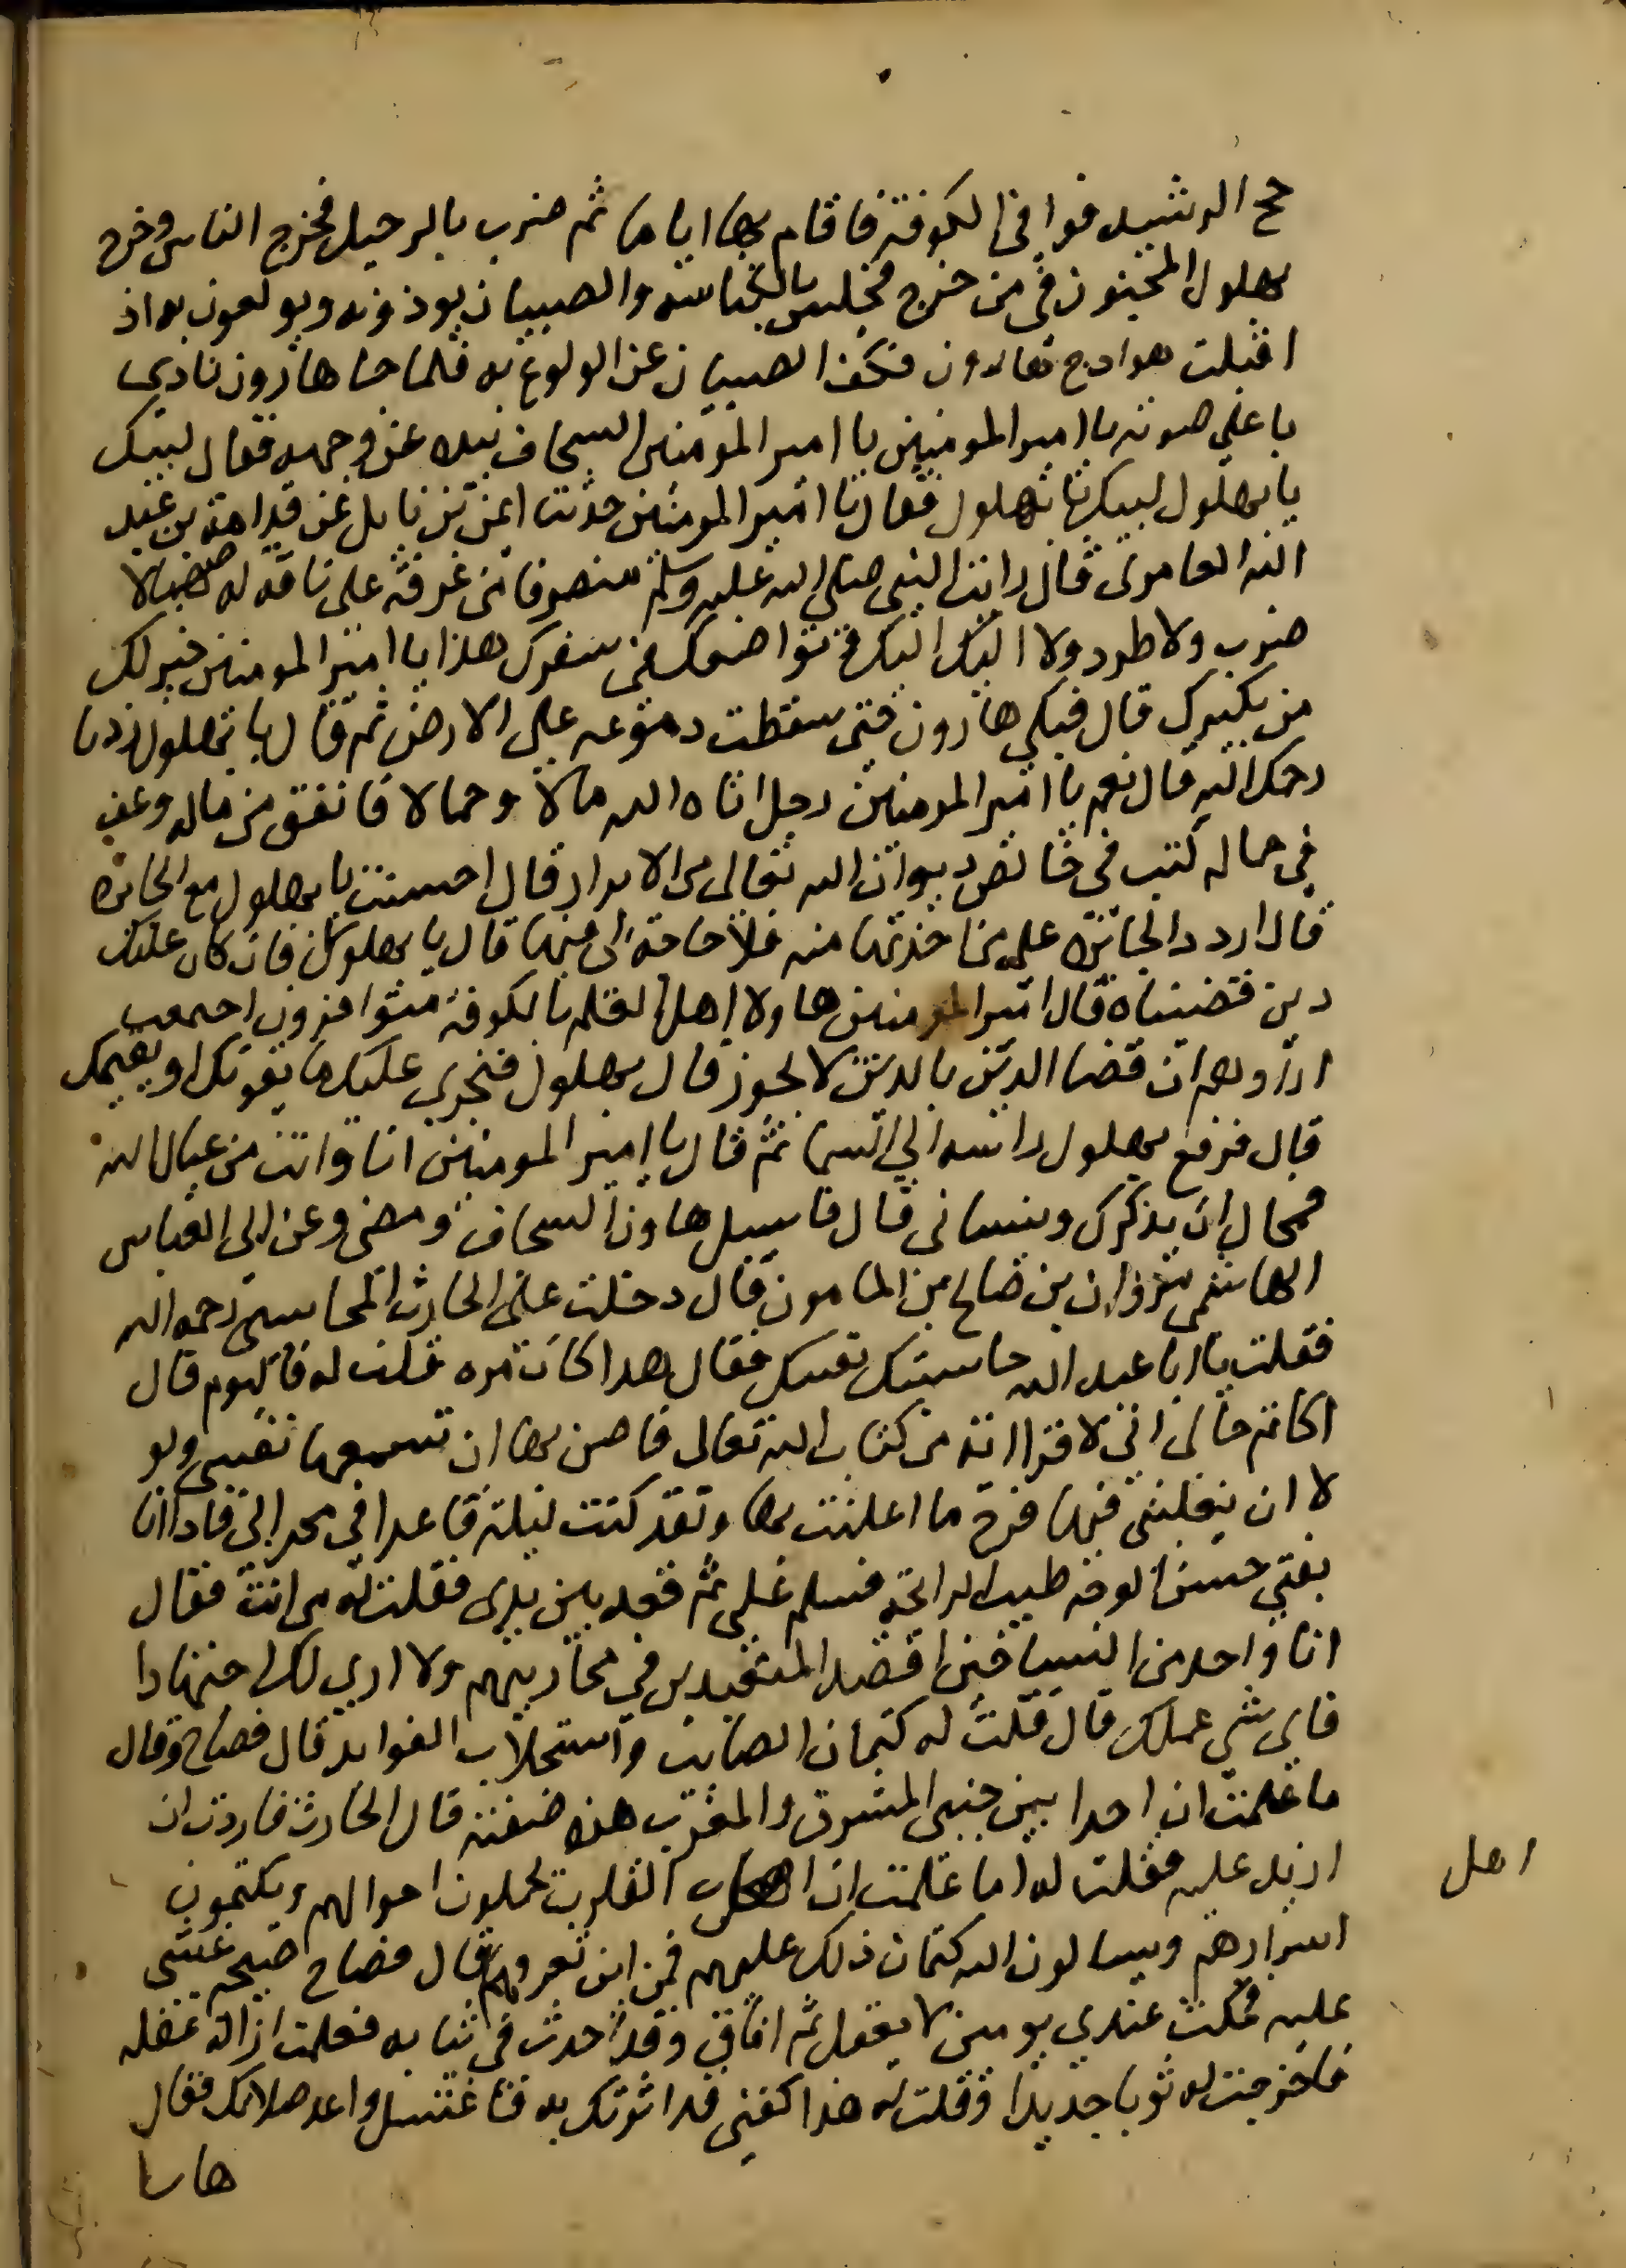 حج الرشيد فوافي الكوفة فاقام بها اياما ثم ضرب بالرحيل فخرج الناس وخرج
بهلول المجنون في من خرج فجلس بالكناسه والصبيان يوذونه ويولعون به اذ
اقبلت هوادج هارون فكف الصبيان عن الولوع به فلما جا هارون نادي
باعلي صوته يا امير المومنين يا امير المومنين السجاف بيده عن وجهه فقال لبيك
يا بهلول لبيك يا بهلول فقال يا امير المومنين حدثنا ايمن بن نابل عن قدامة بن عبد
الله العامري قال رايت النبي صلي الله عليه وسلم منصرفا من عرفة علي ناقة له صهبا لا
ضرب ولا طرد ولا اليك اليك وتواضعك في سفرك هذا يا امير المومنين خير لك
من تكبرك قال فبكي هارون حتي سقطت دموعه علي الارض ثم قال يا بهلول زدنا
رحمك الله قال نعم يا امير المومنين رجل اتاه الله مالا وجمالا فانفق من ماله وعف
في جماله كتب في خالص ديوان الله تعالي من الابرار قال احسنت يا بهلول مع الجائزه
قال اردد الجائزه علي من اخذتها منه فلا حاجة لي فيها قال يا بهلول فان كان عليك
دين قضيناه قال يا امير المومنين هاولا اهل العلم بالكوفة متوافرون اجمعت
اراوهم ان قضا الدين بالدين لا يجوز قال بهلول فنجري عليك ما يقوتك او يقيمك
قال فرفع بهلول راسه الي السما ثم قال يا امير المومنين انا وانت من عيال الله
فمحال ان يذكرك وينساني قال فاسبل هارون السجاف ومضي وعن ابي العباس
الهاشمي بن صالح من المامون قال دخلت علي الحارث المحاسبي رحمه الله
فقلت يا ابا عبد الله حاسبتك نفسك فقال هذا كان مره قلت له فاليوم قال
اكاتم حالي اني لاقرا اية من كتاب الله تعالي فاضن بها ان تسمعها نفسي ولو
لا ان يغلبني فيها فرح ما اعلنت بها ولقد كنت ليلة قاعدا في محرابي فاذا انا
بفتي حسن الوجه طيب الرائحة فسلم علي ثم قعد بين يدي فقلت له من انت فقال
انا واحد من السياحين اقصد المتعبدين في محاريبهم ولا اري لك اجتهادا
فاي شي عملك قال قلت له كتمان المصائب واستجلاب الفوايد قال فصاح وقال
ما علمت ان احدا بين جنبي المشرق والمغرب هذه صفته قال الحارث فاردت ان
ازيد عليه فقلت له اما علمت ان القلوب يحملون احوالهم ويكتمون
اسرارهم ويسالون الله كتمان ذلك عليهم فمن اين تعرفهم قال فصاح صيحة غشي
عليه فمكث عندي يومين لا يعقل ثم افاق وقد احدث في ثيابه فعلمت ازالة عقله
فاخرجت له ثوبا جديدا وقلت له هذا كفني قد اثرتك به فاغتسل واعد صلاتك فقال
اهل